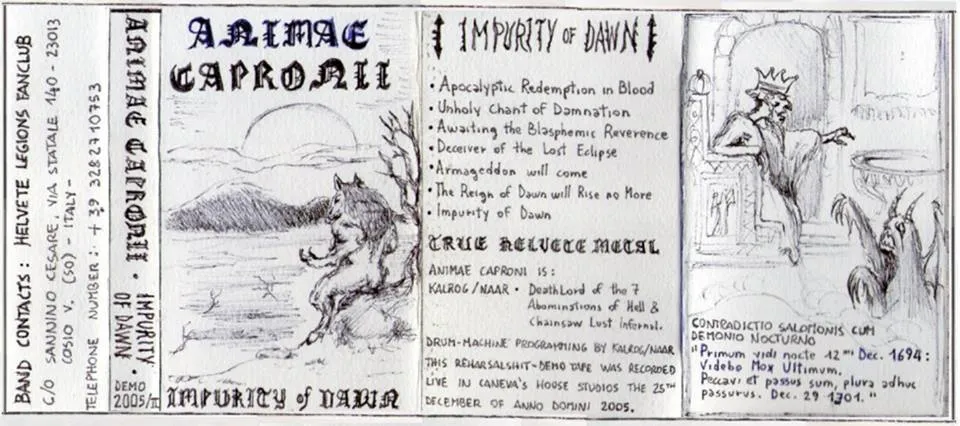 BAND CONTACTS: HELVETE LEGIONS FANCLUB
C/O SANNINO CESARE, VIA STATALE 140 - 23013
COSIO V. (SO) - ITALY -
TELEPHONE NUMBER: +39 3282710753
ANIMAE CAPRONII • IMPURITY OF DAWN •
DEMO
2005/II
ANIMAE
CAPRONII
IMPURITY OF DAWN
IMPURITY OF DAWN
• Apocalyptic Redemption in Blood
• Unholy Chant of Damnation
• Awaiting the Blasphemic Reverence
• Deceiver of the Lost Eclipse
• Armageddon will come
• The Reign of Dawn will Rise no More
• Impurity of Dawn
TRUE HELVETE METAL
ANIMAE CAPRONI IS:
KALROG/NAAR • DeathLord of the 7
Abominations of Hell &
Chainsaw Lust Infernal.
DRUM-MACHINE PROGRAMMING BY KALROG/NAAR
THIS REHARSALSHIT-DEMO TAPE WAS RECORDED
LIVE IN CANEVA'S HOUSE STUDIOS THE 25TH
DECEMBER OF ANNO DOMINI 2005.
CONTRADICTIO SALOMONIS CUM
DEMONIO NOCTURNO
"Primum vidi nocte 12mi Dec. 1694:
Videbo Mox Ultimum.
Peccavi et passus sum, plura adhuc
passurus. Dec. 29 1701."